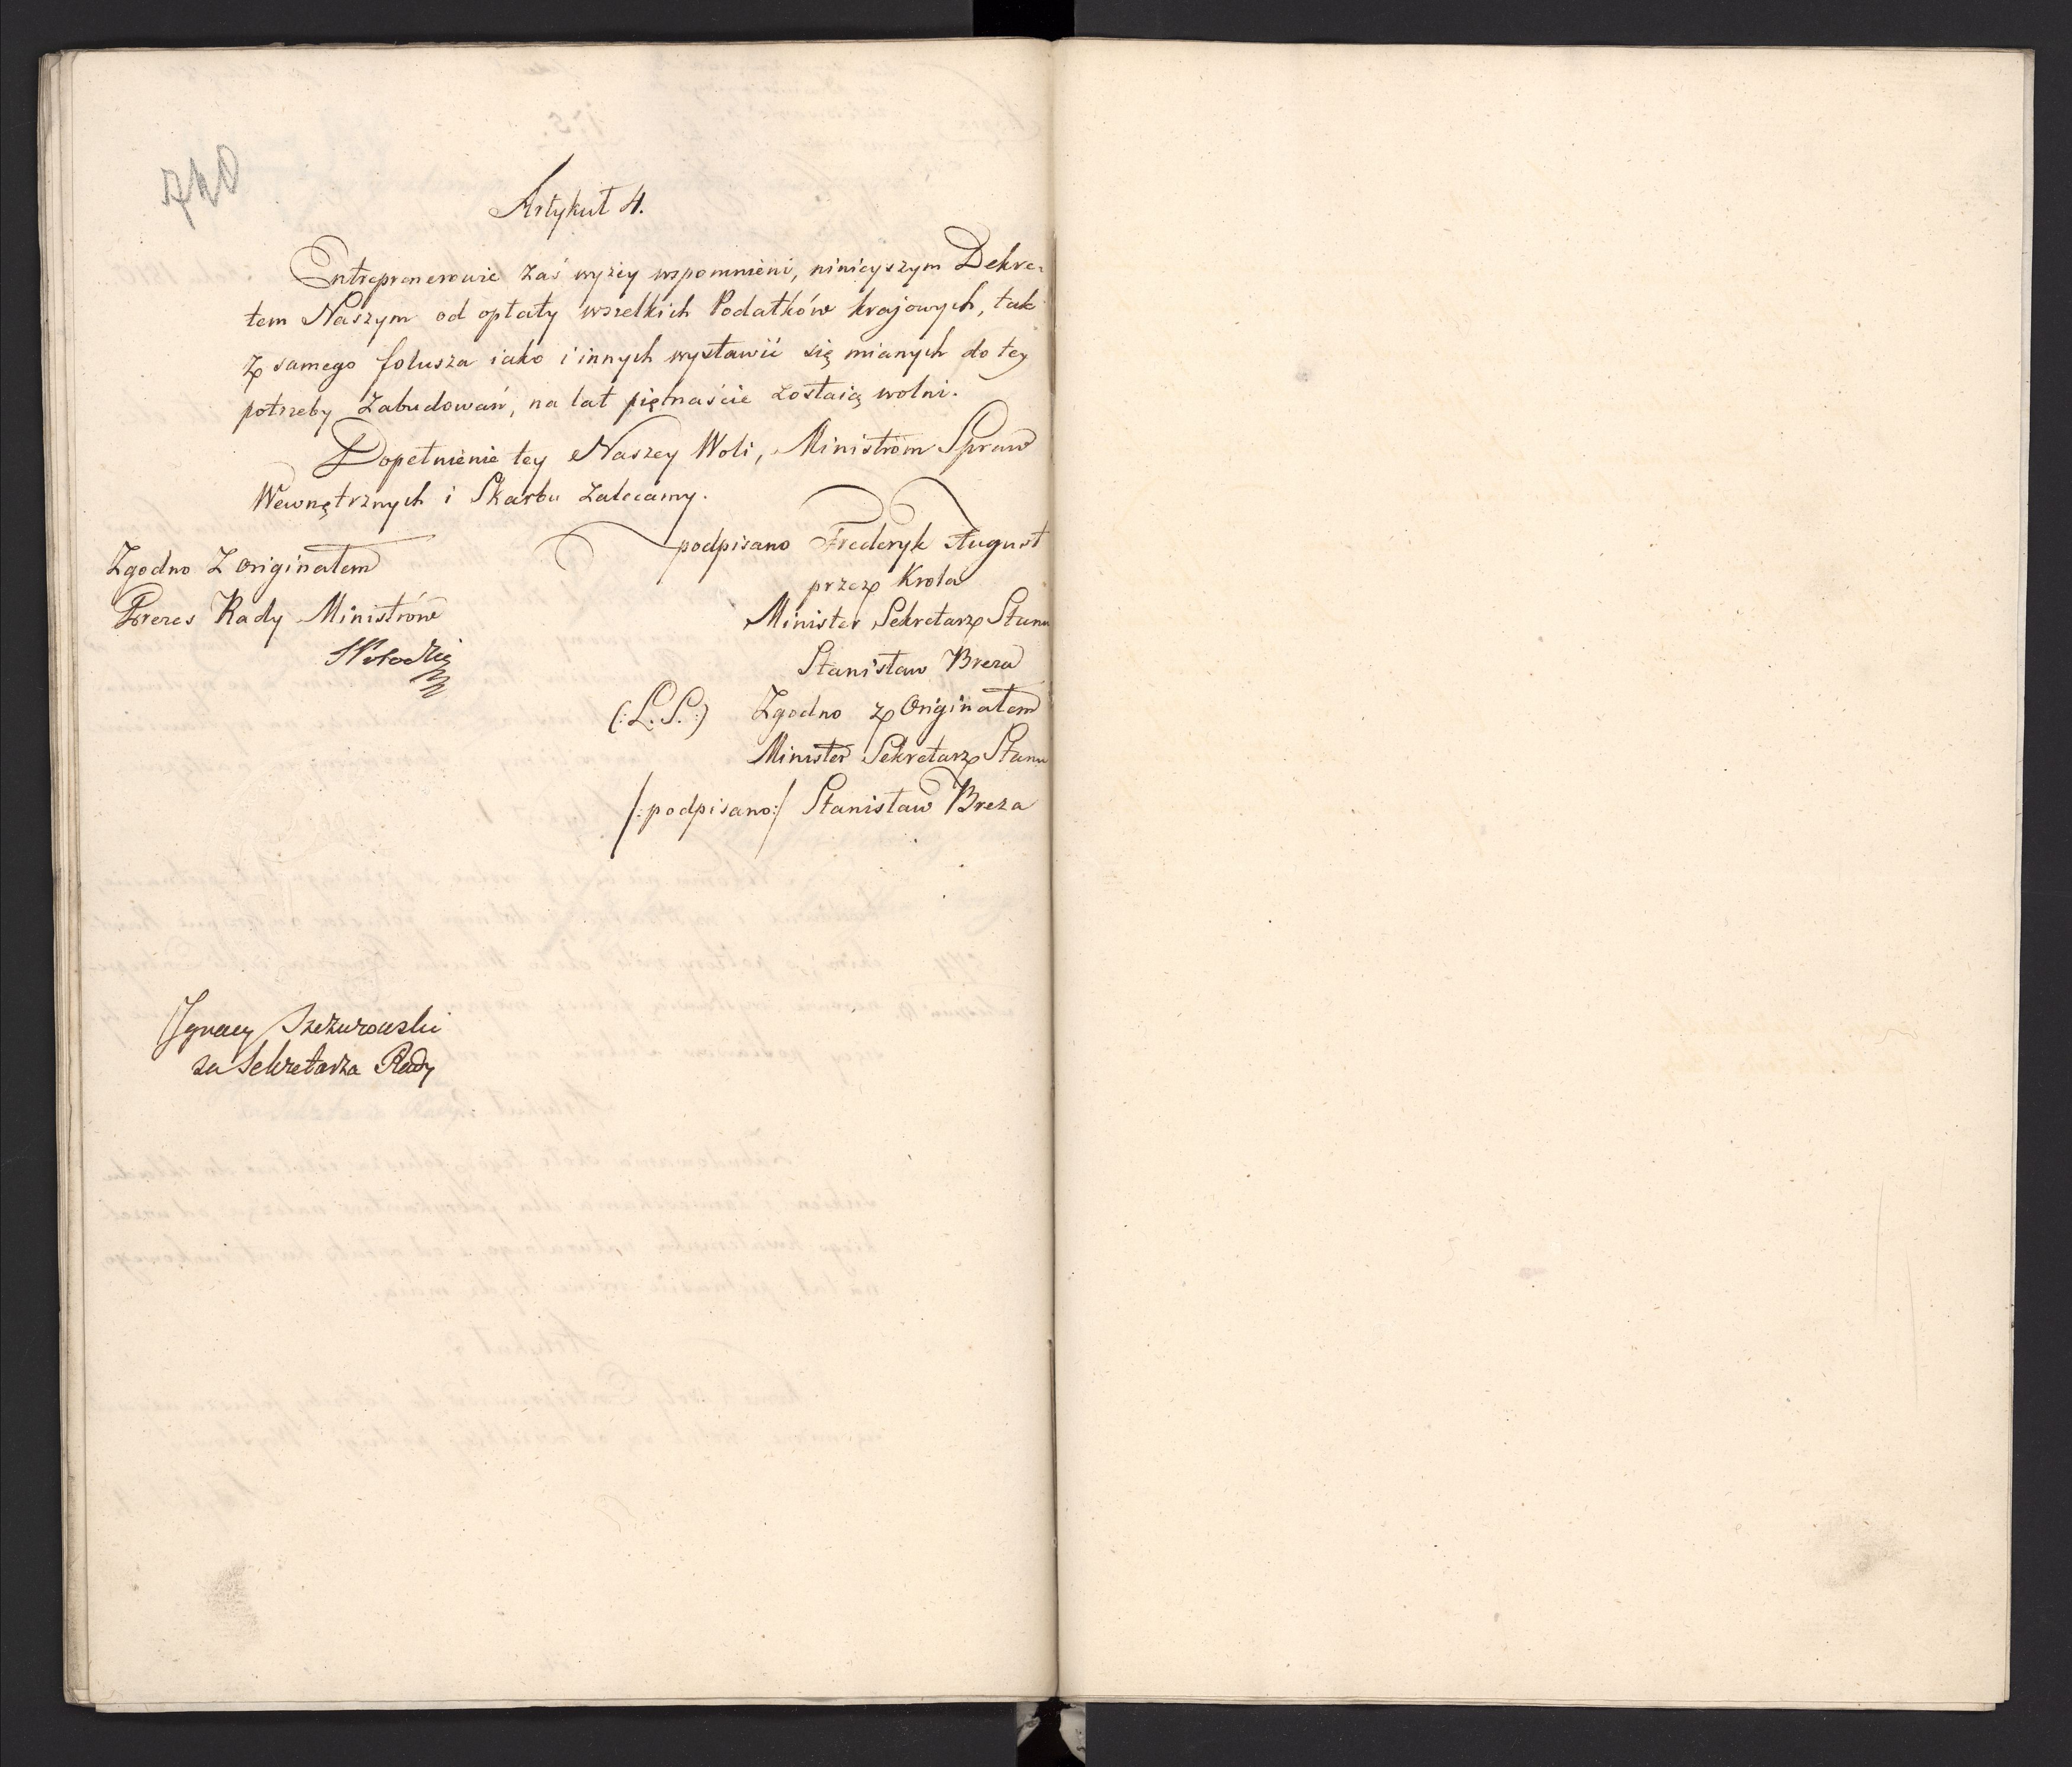 740
Artykuł 4.
Entreprenerowie zaś wyżey wspomnieni, ninieyszym Dekre-
tem Naszym od opłaty wszelkich Podatków krajowych, tak
z samego folusza iako i innych wystawić się mianych do tey
potrzeby zabudowań, na lat piętnaście zostaią wolni.
Dopełnienie tey Naszey Woli, Ministróm Spraw
Wewnętrznych i Skarbu zalecamy.
podpisano Frederyk August
przez Krola
Minister Sekretarz Stanu
Stanisław Breza
(:L.S.:) Zgodno z Originałem
Minister Sekretarz Stanu
/:podpisano:/ Stanisław Breza
Zgodno z Originałem
Prezes Rady Ministrów
Ignacy
za Sekretarza Rady